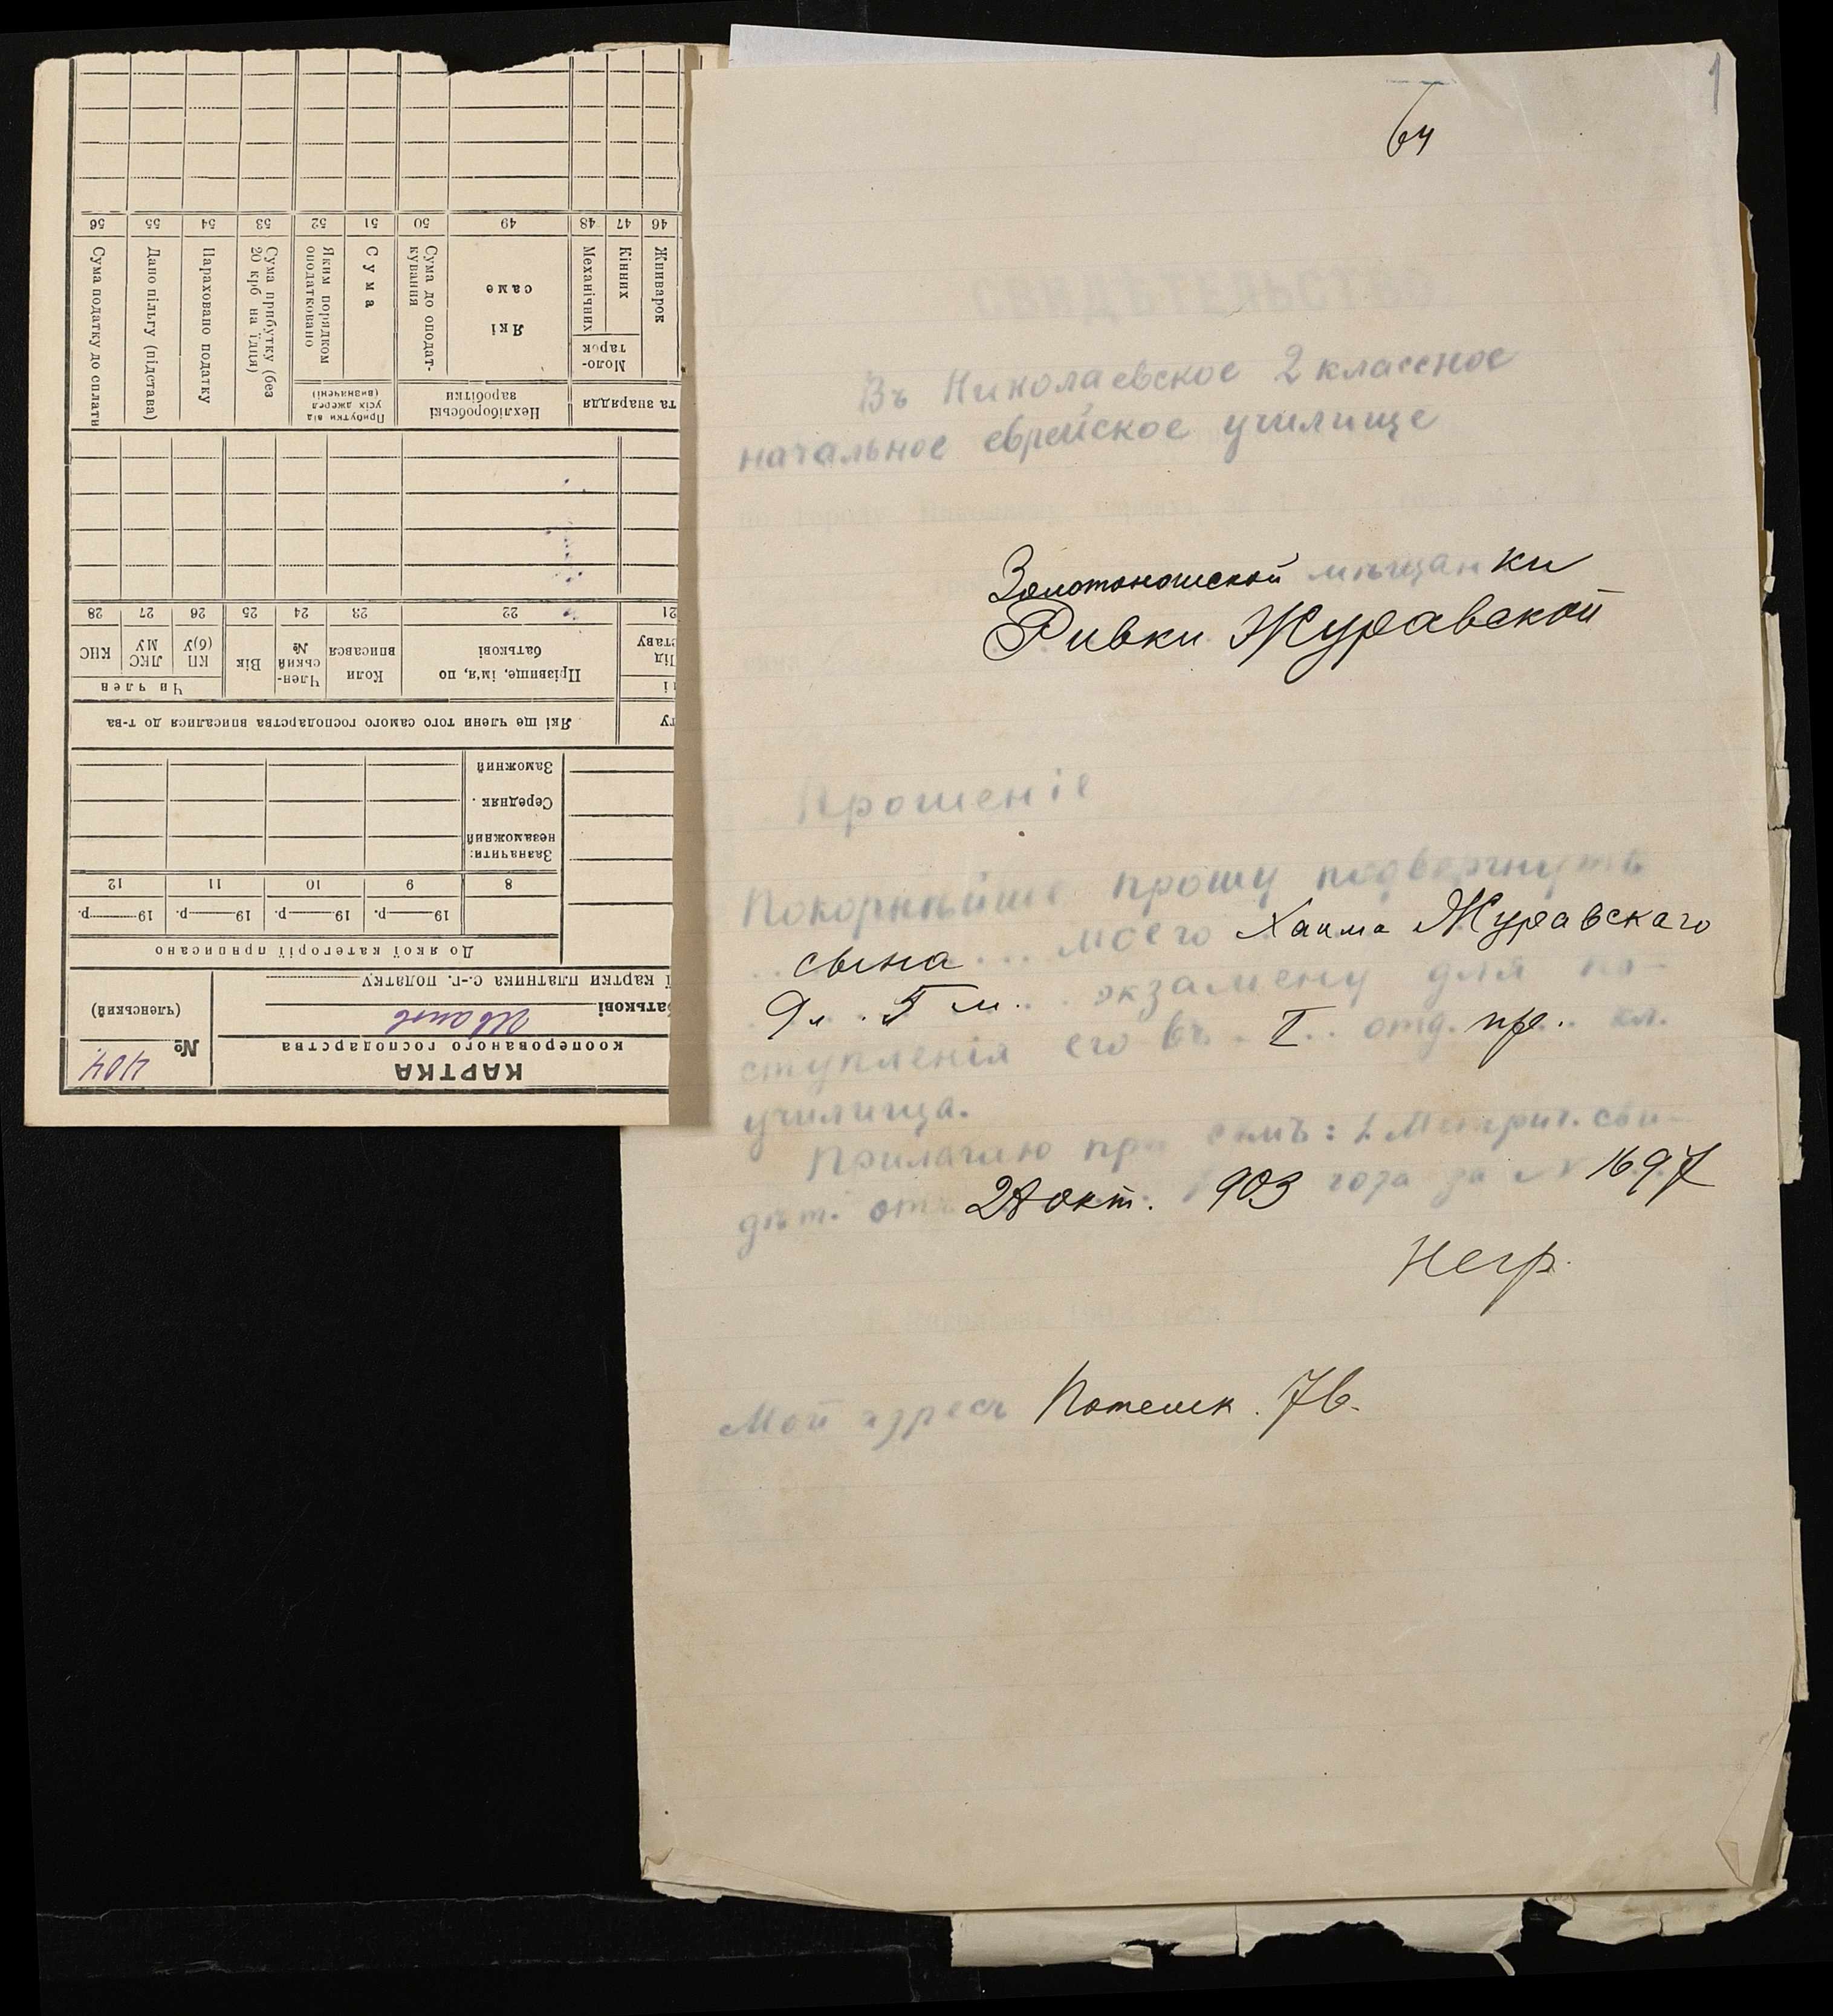 1
64
Въ Николаевское 2 классное
начальное еврейское училище
Золотоношской мѣщанки
Ривки Журавской
Прошеніе
Покорнѣйше прошу подвергнуть
сына ... моего Хаима Журавскаго
9 л. 5 м. экзамену для по-
ступленія его въ I отд. пр. кл.
училища.
Прилагаю при семъ: 1. Метрич. сви-
дѣт. отъ окт. 1903 года за № 1697
Негр.
Мой адресъ Потемк. 76.
КАРТКА
кооперованого господарства
№ 404
(членський)
атькові Иванов
ї картки платника с.-г. податку
До якої категорії приписано
19 р. 19 р. 19 р. 19 р.
8 9 10 11 12
Зазначити:
незаможний
Середняк
Заможний
гу Які ще члени того самого господарства вписалися до т-ва
і Прівзвище, ім'я, по батькові Коли вписався Член-ський № Вік Чи член
Під ставу КП (б)У ЛКС МУ КНС
21 22 23 24 25 26 27 28
та знаряддя Нехліборобські заробітки Прибутки від усіх джерел (визначені)
Жниварок Моло-тарок Кінних Механічних Які саме Сума до оподат-кування Сума Яким порядком оподатковано Сума прибутку (без 20 крб на їдця) Нараховано податку Дано пільгу (підстава) Сума податку до сплати
46 47 48 49 50 51 52 53 54 55 56